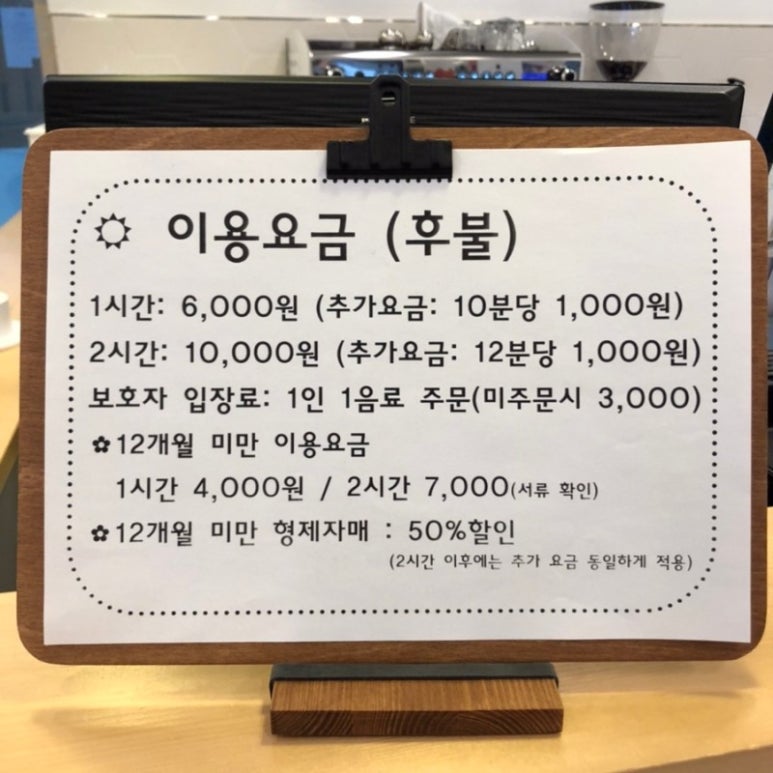 이용요금 (후불)
1시간: 6,000원 (추가요금: 10분당 1,000원)
2시간: 10,000원 (추가요금: 12분당 1,000원)
보호자 입장료: 1인 1음료 주문(미주문시 3,000)
✿12개월 미만 이용요금
1시간 4,000원 / 2시간 7,000(서류 확인)
✿12개월 미만 형제자매 : 50%할인
(2시간 이후에는 추가 요금 동일하게 적용)